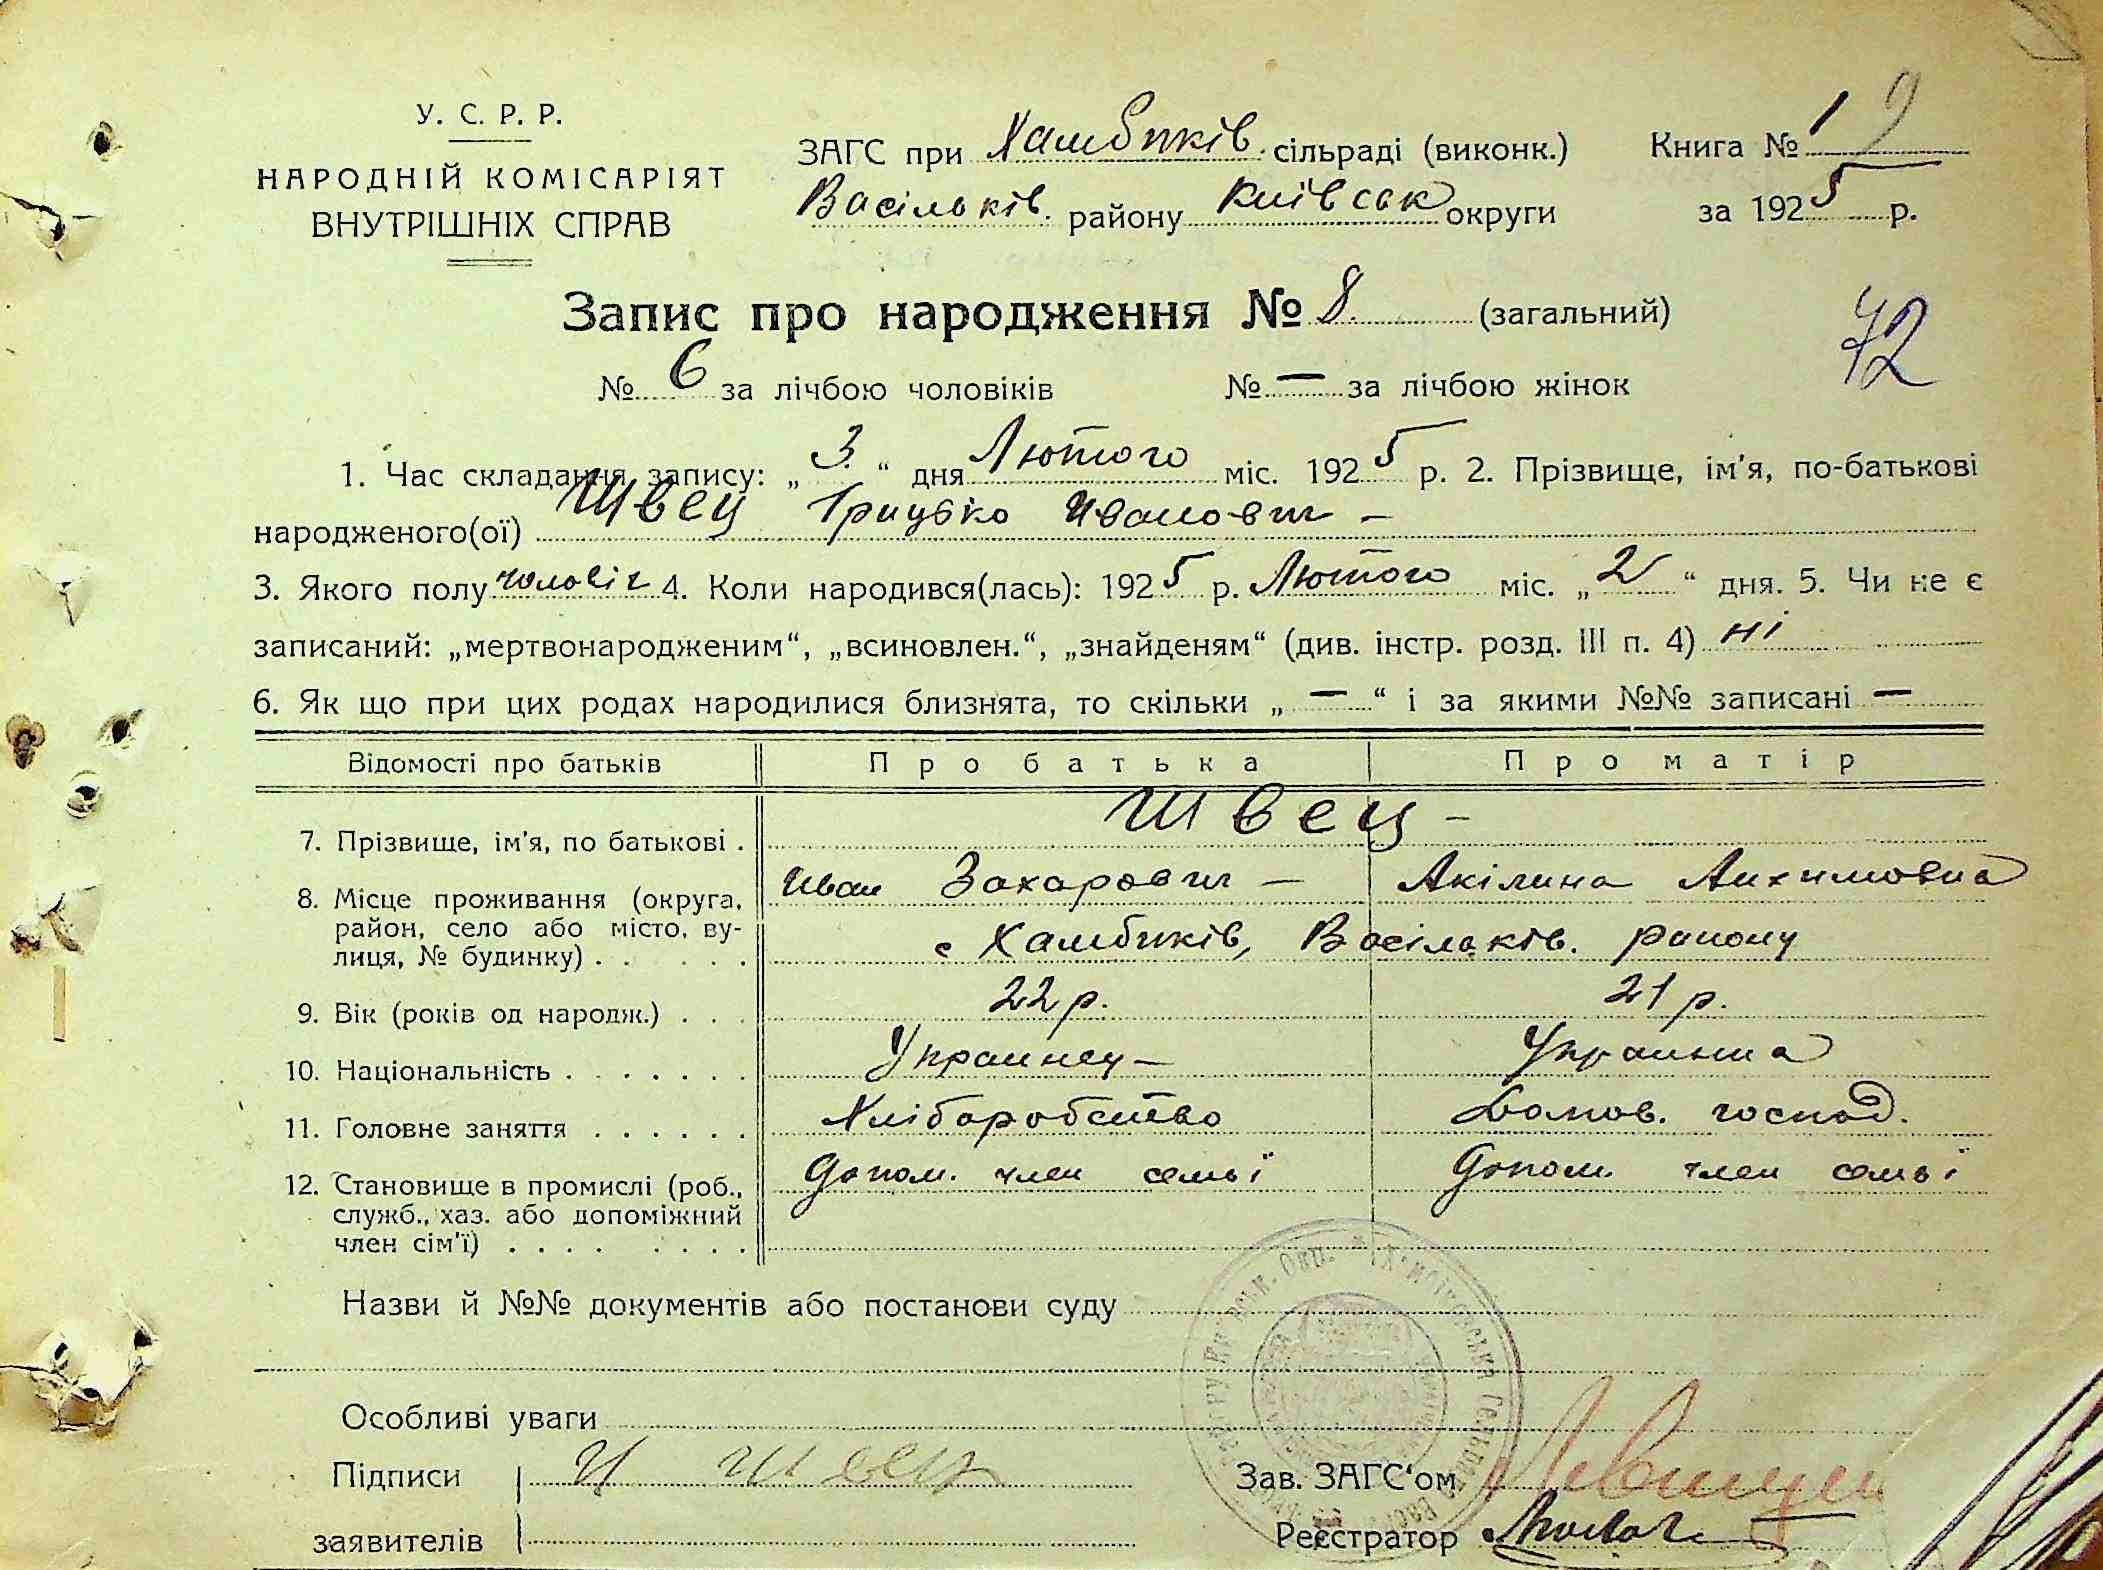 У. С. Р. Р.
НАРОДНІЙ КОМІСАРІЯТ
ВНУТРІШНІХ СПРАВ
ЗАГС при Хамбиків. сільраді (виконк.)
Васільків. району Київськ округи
Книга № 1 9
за 1925 р.
Запис про народження № 8. (загальний)
72
№ 6 за лічбою чоловіків № — за лічбою жінок
1. Час складання запису: „3.“ дня Лютого міс. 1925 р. 2. Прізвище, ім'я, по-батькові
народженого(ої) Швец Грицько Иванович —
3. Якого полу чоловіч 4. Коли народився(лась): 1925 р. Лютого міс. „2“ дня. 5. Чи не є
записаний: „мертвонародженим“, „всиновлен.“, „знайденям“ (див. інстр. розд. III п. 4) ні
6. Як що при цих родах народилися близнята, то скільки „—“ і за якими №№ записані —
Відомості про батьків Про батька Про матір
7. Прізвище, ім'я, по батькові . Швец —
Иван Захарович — Акілина Анхимовна
8. Місце проживання (округа,
район, село або місто, ву-
лиця, № будинку) . . . . . . с Хамбиків, Васільків. району
9. Вік (років од народж.) . . . 22 р. 21 р.
10. Національність . . . . . . . Украинец — Украинка
11. Головне заняття . . . . . . Хліборобство Домов. господ.
12. Становище в промислі (роб.,
служб., хаз. або допоміжний
член сім'ї) . . . . . . . . Допом. член семьї Допом. член семьї
Назви й №№ документів або постанови суду
Особливі уваги
Підписи И Швец
заявителів
Зав. ЗАГС'ом
Реєстратор